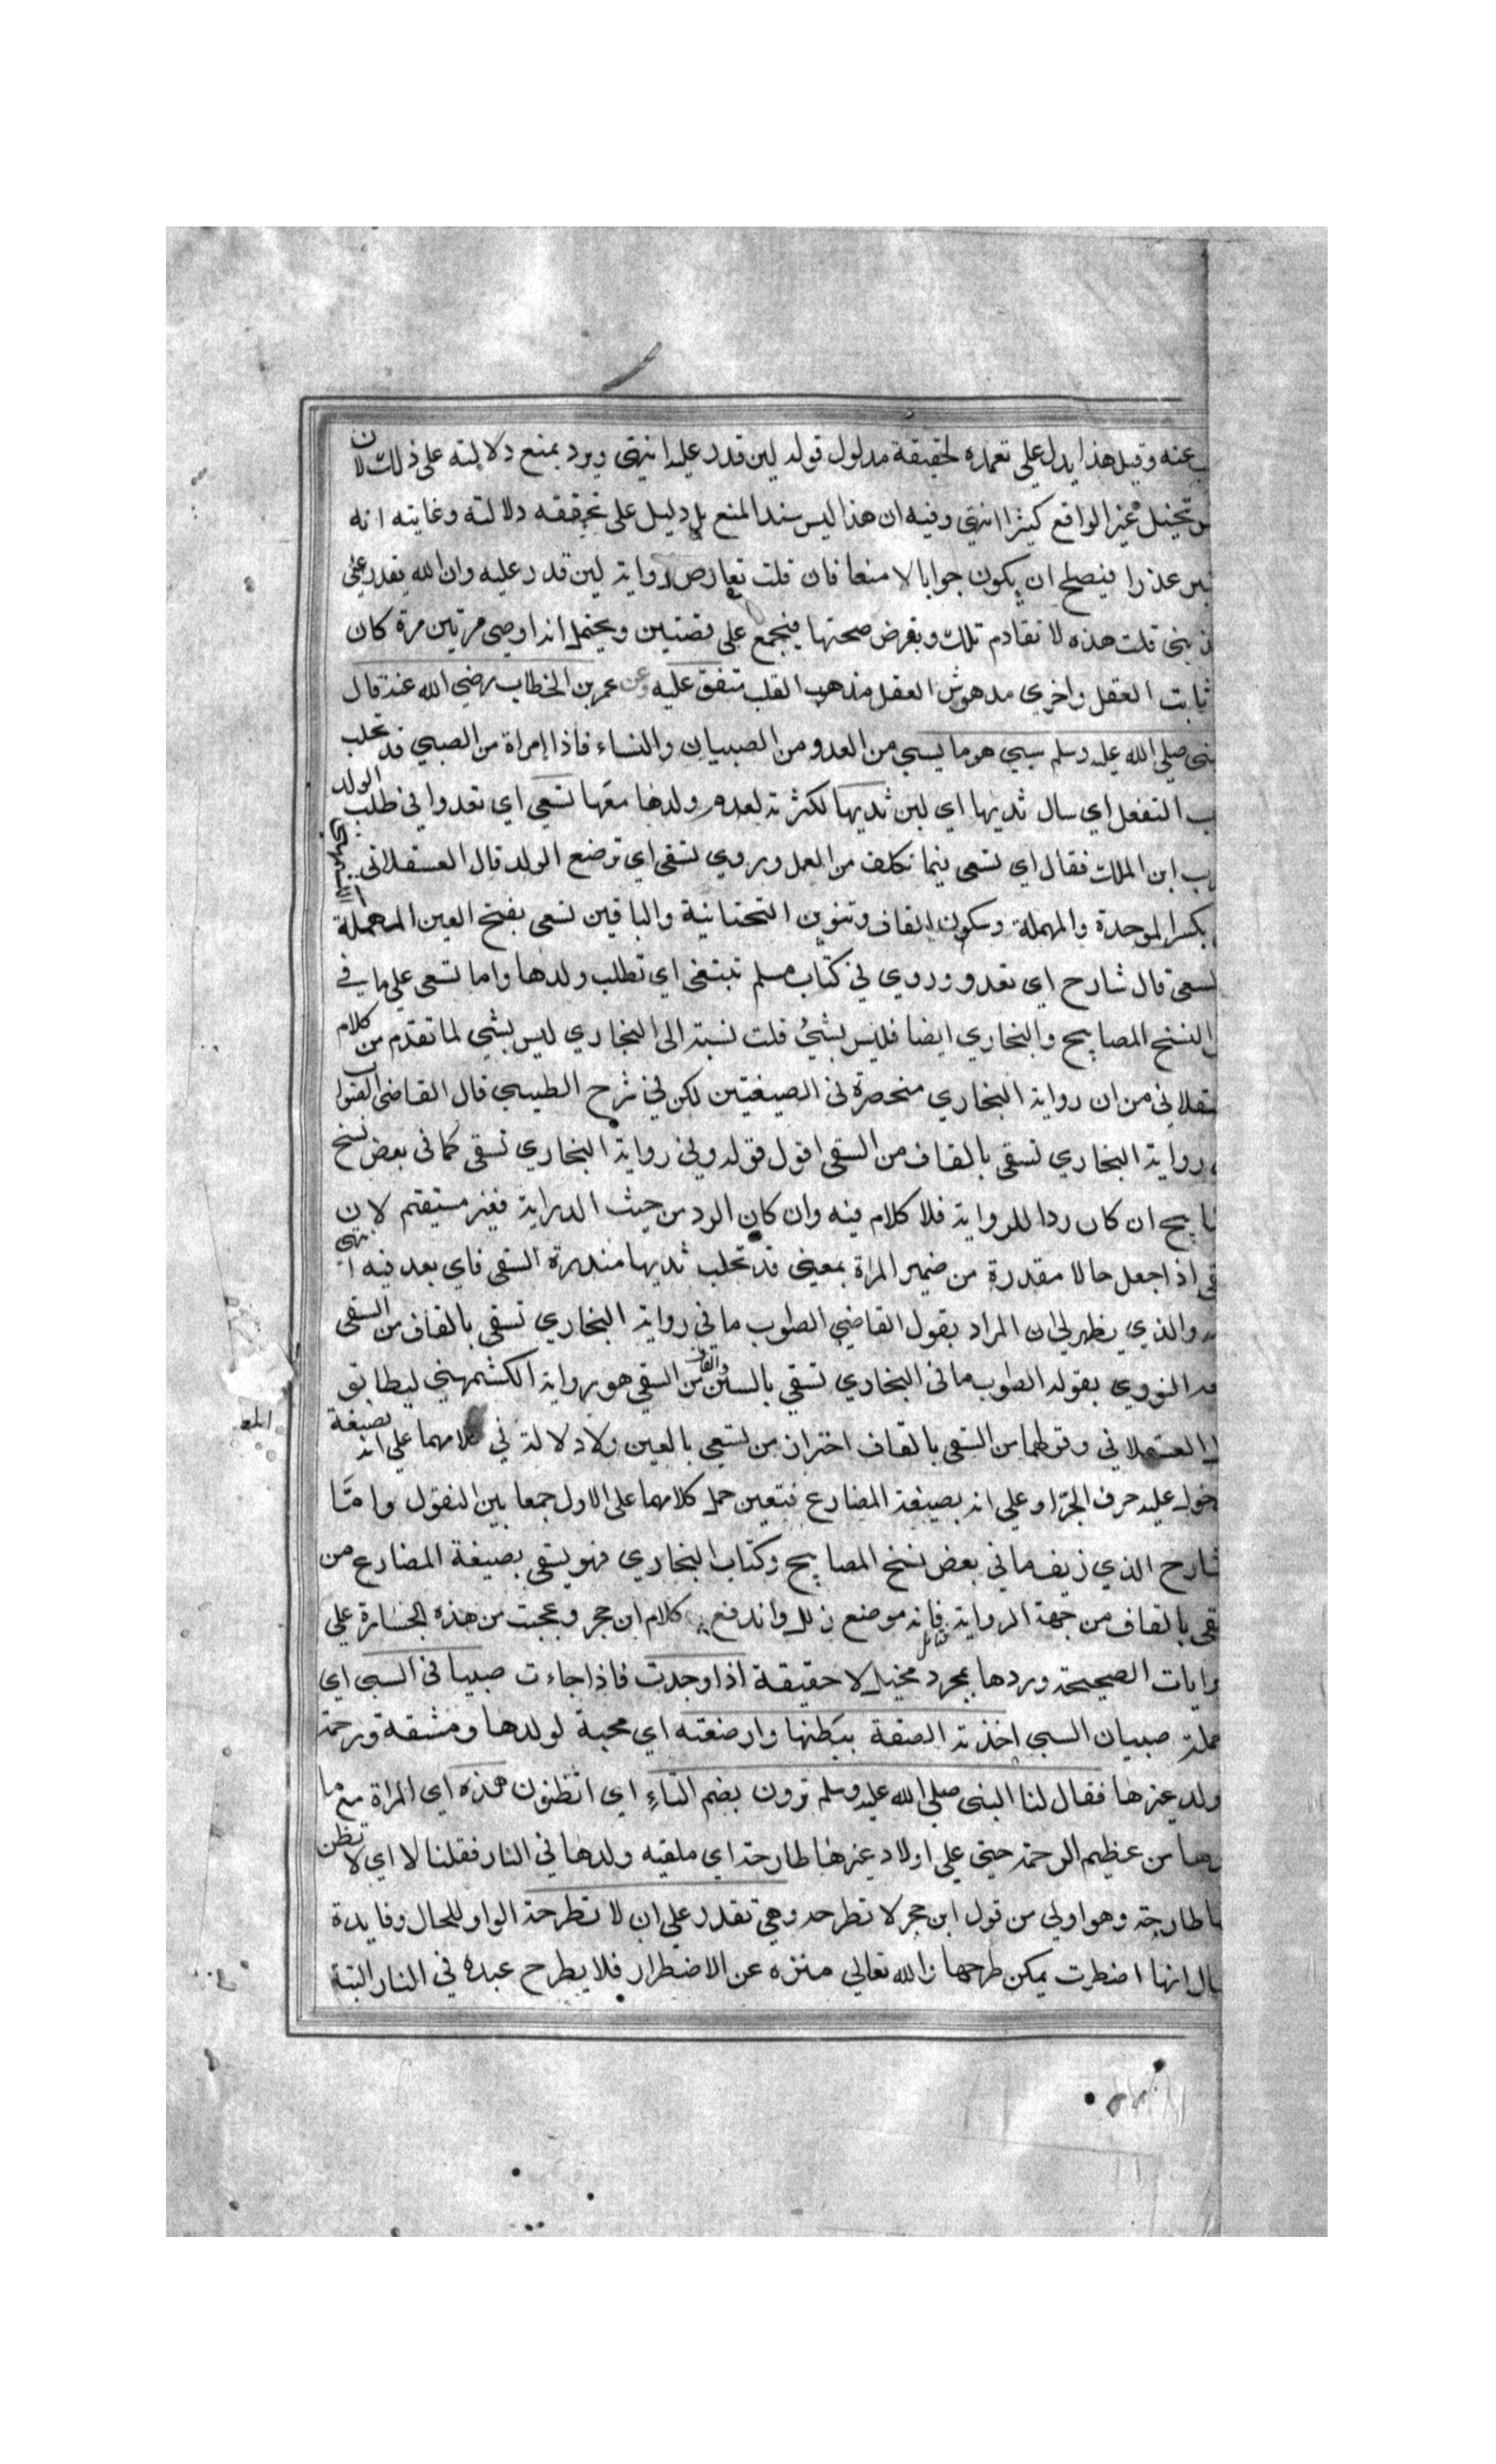 عنه وقيل هذا يدل على تعمده لحقيقة مدلول قوله لين قدر عليه انتهى ويرد بمنع دلالته على ذلك لان
تخيل غير الواقع كثيرا انتهى وفيه ان هذا ليس سند المنع بل دليل على تحققه دلالته وغايته انه
عذرا فيصلح ان يكون جوابا لا منعا فان قلت تعارض رواية لين قدر عليه وان الله يقدر على
قلت هذه لا تقادم تلك وبفرض صحتها فيجمع على قصتين ويحتمل انه اوصى مرتين مرة كان
ثابت العقل واخرى مدهوش العقل مذهب القلب متفق عليه وعن عمر بن الخطاب رضي الله عنه قال
صلى الله عليه وسلم سبي هو ما يسبي من العدو من الصبيان والنساء فاذا امراة من الصبي قد تحلب
التفعل اي سال ثديها اي لبن ثديها لكثرته لعدم ولدها معها تسعى اي تعدوا في طلب الولد
ابن الملك فقال اي تسعى بما تكلف من العمل وروي تسقى اي ترضع الولد قال العسقلاني
بكسر الموحدة والمهملة وسكون القاف وتنوين التحتانية والباقين تسعى بفتح العين المهملة
تسعى قال شارح اي تعدو وروي في كتاب مسلم تبتغى اي تطلب ولدها واما تسعى على ما في
النسخ المصابيح والبخاري ايضا فليس بشيء قلت نسبته الى البخاري ليس بشي لما تقدم من كلام
من ان رواية البخاري منحصرة في الصيغتين لكن في شرح الطيبي قال القاضي
رواية البخاري تسقى بالقاف من السقى اقول قوله وفي رواية البخاري تسقى كما في بعض نسخ
ان كان ردا للرواية فلا كلام فيه وان كان الرد من حيث الدراية فغير مستيقم لان
اذا جعل حالا مقدرة من ضمير المراة بمعنى قد تحلب ثديها مقدرة السقى فاي بعد فيه انتهى
والذي يظهر لي ان المراد بقول القاضي الصوب ما في رواية البخاري تسقى بالقاف من السقى
النووي بقوله الصوب ما في البخاري تسقي بالسين والقاف من السقي هو رواية الكشميهني ليطابق
العسقلاني وقولهما من السقى بالقاف احتراز من تسعى بالعين ولا دلالة في كلامهما على انه بصيغة
عليه حرف الجر او على انه بصيغة المضارع فيتعين حمل كلامهما على الاول جمعا بين النقول واما
شارح الذي زيف ما في بعض نسخ المصابيح وكتاب البخاري فهو يسقى بصيغة المضارع من
بالقاف من جهة الرواية فانه موضع زلل واندفع كلام ابن حجر وعجبت من هذه الجسارة على
الصحيحة وردها بمجرد مخيل لا حقيقة اذا وجدت فاذا جاءت صبيا في السبي اي
صبيان السبي اخذته الصقة ببطنها وارضعته اي محبة لولدها ومشقة ورحمة
ولد غيرها فقال لنا النبي صلى الله عليه وسلم ترون بضم التاء اي اتظنون هذه اي المراة مع ما
من عظيم الرحمة حتى على اولاد غيرها طارحة اي ملقيه ولدها في النار فقلنا لا اي لا نظن
طارحته وهو اولى من قول ابن حجر لا تطرحه وهي تقدر على ان لا تطرحه الواو للحال وفايدة
انها اضطرت يمكن طرحها والله تعالى منزه عن الاضطرار فلا يطرح عبده في النار البتة